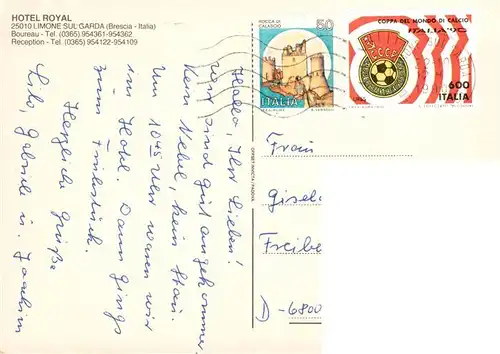 HOTEL ROYAL
25010 LIMONE SUL GARDA (Brescia - Italia)
Boureau - Tel. (0365) 954361-954362
Reception - Tel. (0365) 954122-954109
Hallo, Ihr Lieben!
wir sind gut angekommen.
Kein Nebel, kein Stau.
Um 10⁴⁵ Uhr waren wir
im Hotel. Dann gings
zum Frühstück.
Herzliche Grüße
Gabriele u. Joachim
ROCCA DI
CALASCIO
50
ITALIA
COPPA DEL MONDO DI CALCIO
ITALIA'90
CCCP
600
ITALIA
Frau
Gisel
Freibe
D-6800